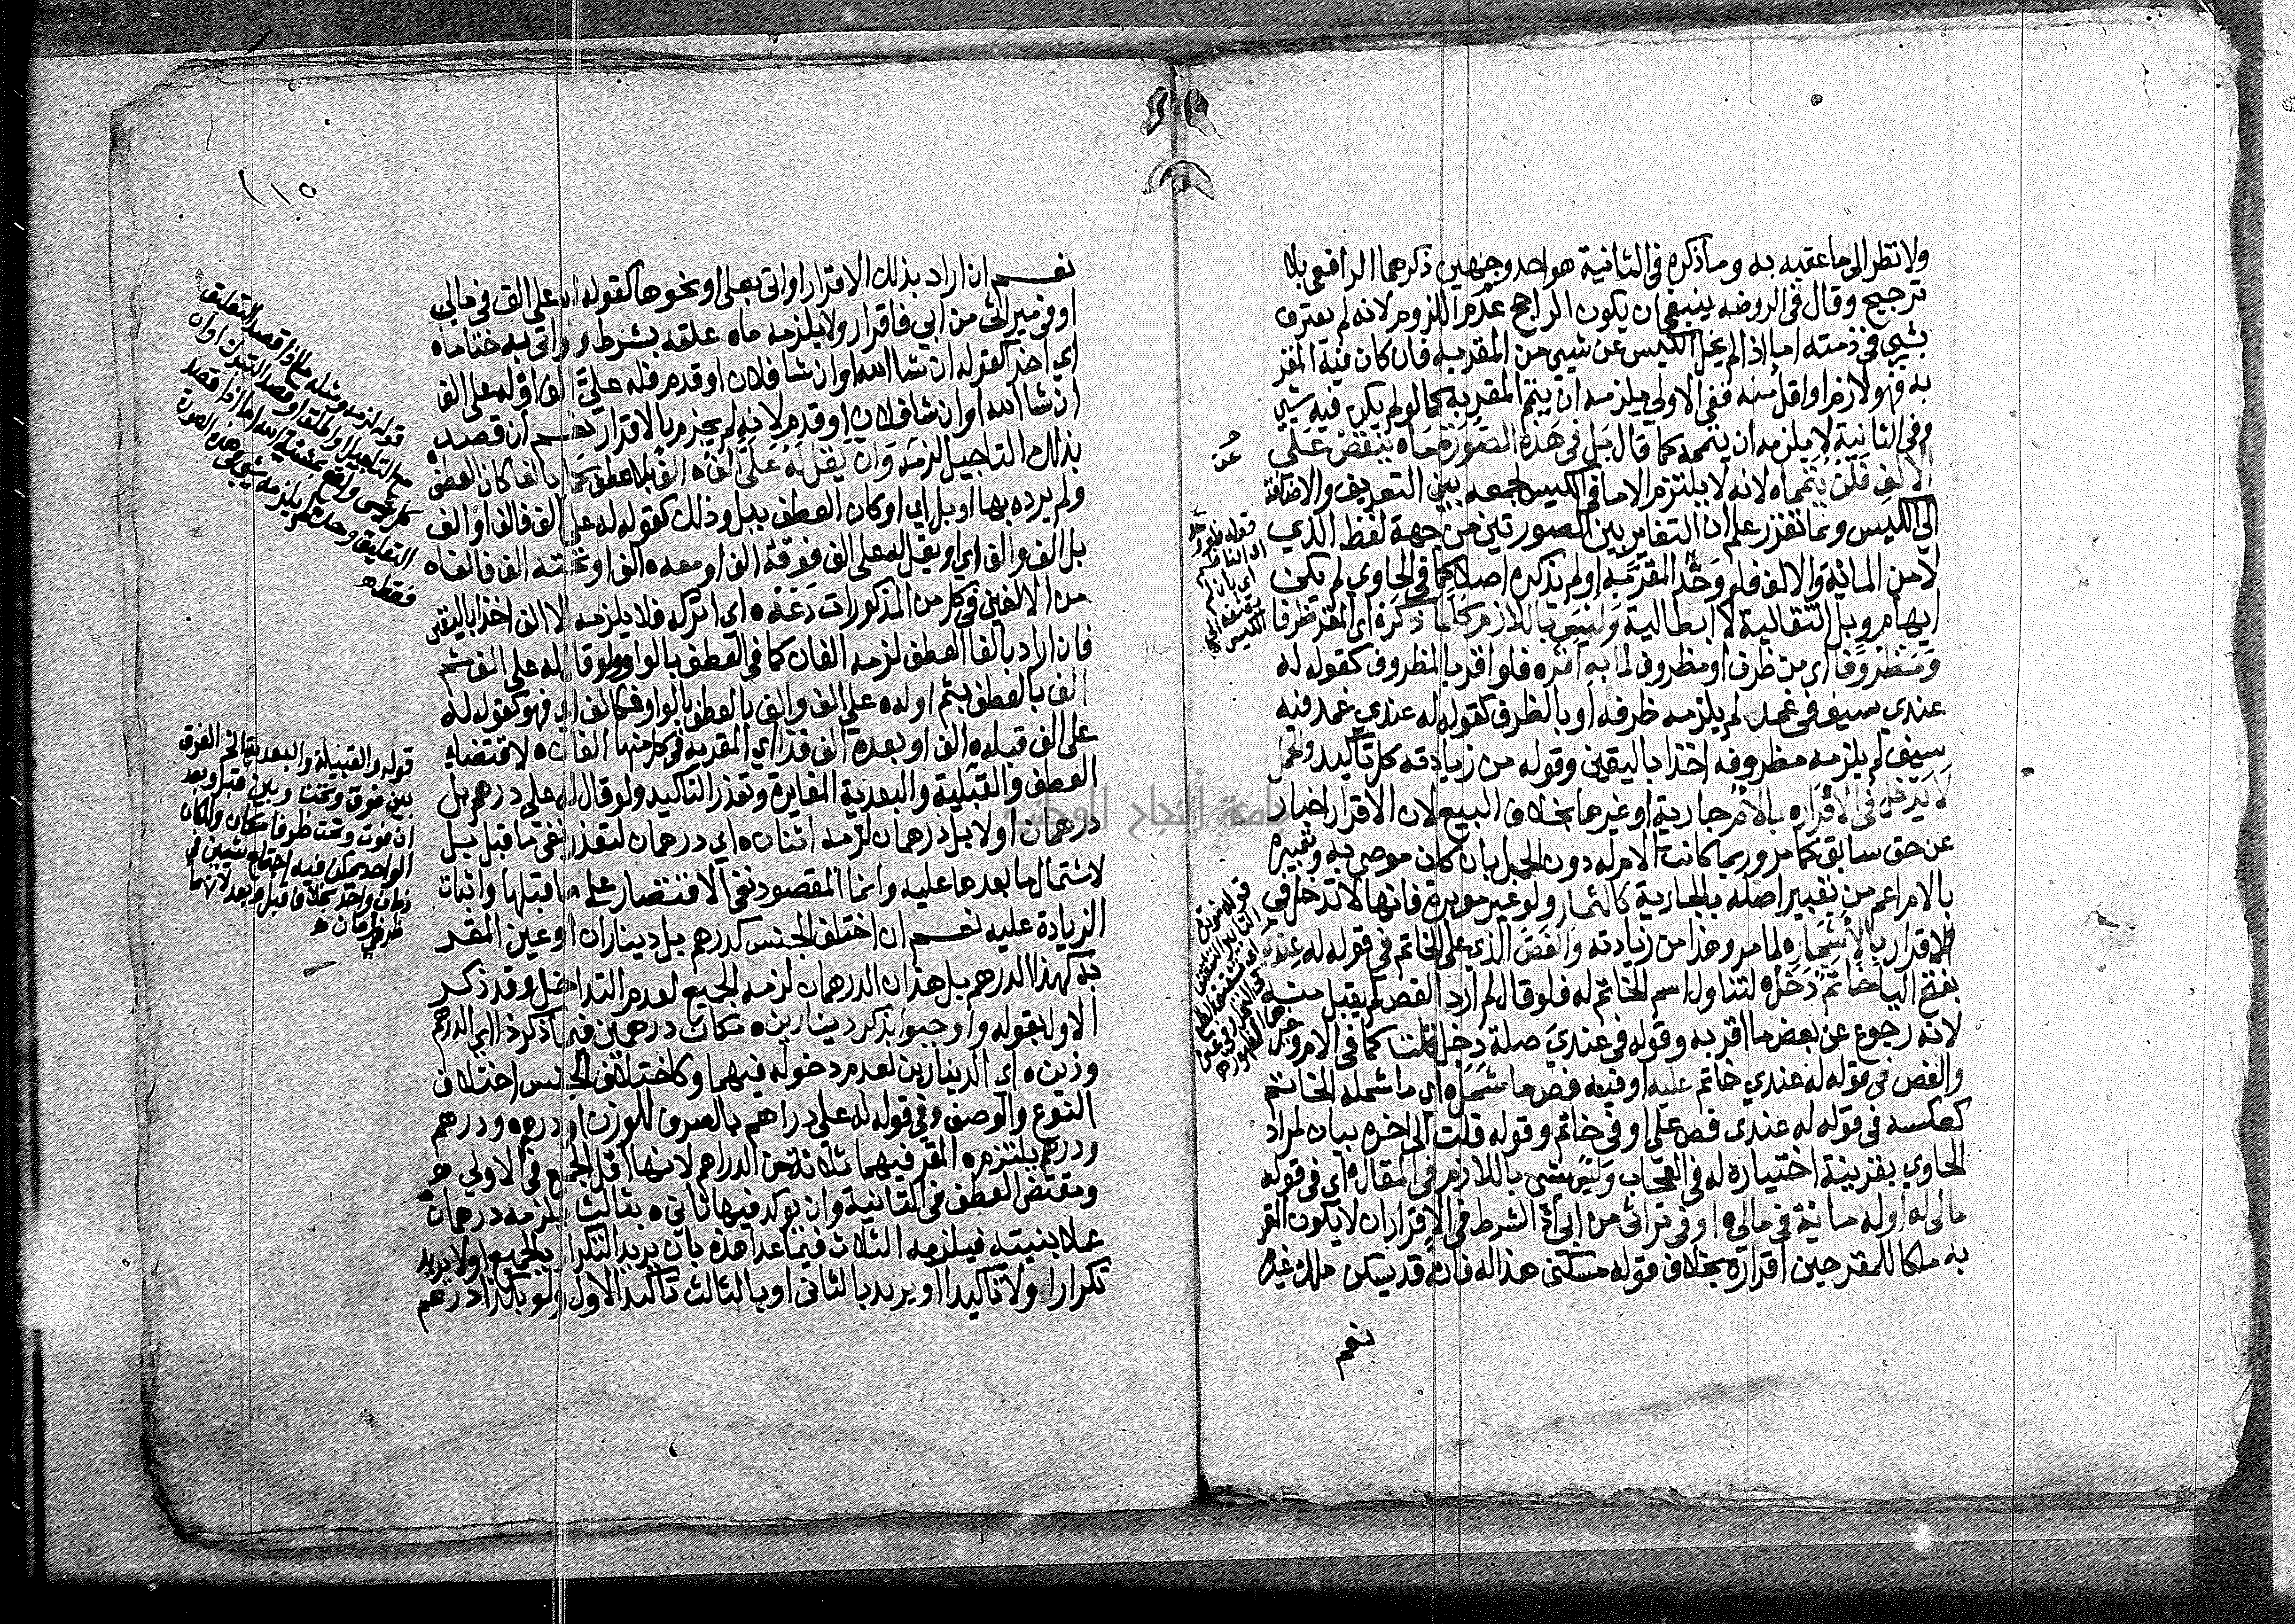 ولا نظر الى ما عقبه به وما ذكره في الثانية هو احد وجهين ذكرهما الرافعي بلا
ترجيح وقال في الروضه ينبغي ان يكون الراجح عدم اللزوم لانه لم يعترف
بشي في ذمته اما اذا لم يخل الكيس عن شيى من المقر به فان كان فيه المقر
به فهو لازم او اقل منه ففي الاولي يلزمه ان يتمم المقر به كما لو لم يكن فيه شيى
وفي الثانية لا يلزمه ان يتممه كما قال بل في هذه الصورة ماه ينقص على
الالف فلن يتمماه لانه لا يلتزم الا ما في الكيس لجمعه بين التعريف والاضافة
الى الكيس ومما تقرر علم ان التغاير بين الصورتين من جهة لفظ الذي
لا من المائية والالف فلم وحد المقر به او لم يذكره اصلا كما في الحاوي لم يكن
ايهام وبل انتقالية لا ابطالية وليس باللازم كلما ذكره اي المقر ظرفا
ومظروفا اي من ظرف او مظروف لما به اقره فلو اقر بالمظروف كقوله له
عندي سيف في غمد لم يلزمه ظرفه او بالظرف كقوله له عندي غمد فيه
سيف لم يلزمه مظروفه اخذا باليقين وقوله من زيادته كل تأكيد والحمل
لا يدخل في الاقراره بالام جارية او غيرها بخلاف البيع لان الاقرار اخبار
عن حق سابق كما مر وربما كانت الام له دون الحمل بان كان موصى به وتعبيره
بالام اعم من تعبير اصله بالجارية كالثمار ولو غير موبرة فانها لا تدخل في
الاقرار بالاشجار ولما مر وهذا من زيادته والفص الذي على الخاتم في قوله له عندي
بفتح اليا خاتم دخله لتناول اسم الخاتم له فلو قال لم ارد الفص لم يقبل منه
لانه رجوع عن بعض ما اقر به وقوله في عندي صلة دخل قلت كما في الام وجل
والفص في قوله له عندي خاتم عليه او فيه فص ما شمله اي ما شمله الخاتم
كعكسه في قوله له عندي فص علي او في خاتم وقوله قلت الى اخره بيان لمراد
الحاوي بقرينة اختياره له في العجاب وليس شى باللازم في المقاله اي في قوله
مالى له او له مائة في مالي او في تراثي من ابي اذ الشرط في الاقرار ان لا يكون المقر
به ملكا للمقر حين اقراره بخلاف قوله مسكني هذا له فانه قد يسكن ملك غيره
نعم
١١٥
نعم ان اراد بذلك الاقرار او اتى بعلى او نحوها كقوله له على الف في مالي
او في ميراثى من ابي فاقرار ولا يلزمه ماه علقه بشرط او اتى به ختاماه
اي اخر كقوله ان شا الله او ان شا فلان او قدم فله علي الف او له على الف
ان شا الله او ان شا فلان او قدم لانه لم يجزم بالاقرار نعم ان قصد
بذلك التاجيل لزمه وان يقل له على الف الف بلا عطف كما بالفا كان العطف
ولم يرده بها او بل اي او كان العطف ببل وذلك كقوله له على الف فالف او الف
بل الف والف اي او يقل له على الف فوقه الف او معه الف او تحته الف فالفاه
من الالفين في كل من المذكورات دعه اي اتركه فلا يلزمه الا الف اخذا باليقين
فان اراد بالفا العطف لزمه الفان كما في العطف بالواو ولو قال له على الف ثم
الف بالعطف بثم او له علي الف والف بالعطف بالواو فكالف اي فهو كقوله له
على الف قبله الف او بعده الف فذا اي المقر به في كل منها الفان لاقتضاء
العطف والقبلية والبعدية المغايرة وتعذر التاكيد ولو قال له علي درهم بل
درهمان او لا بل درهمان لزمه اثنان اي درهمان لتعذر نفي ما قبل بل
لاشتمال ما بعدها عليه وانما المقصود نفي الاقتصار على ما قبلها واثبات
الزيادة عليه نعم ان اختلف الجنس كدرهم بل ديناران او عين المقر
به كهذا الدرهم بل هذان الدرهمان لزمه الجميع لعدم التداخل وقد ذكر
الاول بقوله وأوجبوا بذكر دينارين مكان درهمين فيما ذكر ذا اي الدرهم
وذين اي الدينارين لعدم دخوله فيهما وكاختلاف الجنس اختلاف
النوع والوصف وفي قوله له علي دراهم بالصرف للوزن او درهم ودرهم
ودرهم يلتزم المقر فيهما ثلاثة من الدراهم لانها اقل الجمع في الاولي
ومقتضى العطف في الثانية وان يوكد فيها ثاني بثالث يلزمه درهمان
عملا بنيته فيلزمه الثلاث فيما عدا هذه بان يريد التكرار بالجميع او لا يريد
تكرارا ولا تاكيدا او يريد بالثاني او بالثالث تاكيد الاول ولو بكذا درهم
قوله والقبيلة والبعدية الخ الفرق
بين فوق وتحت وبين قبل وبعد
ان فوق وتحت ظرفا مكان والمكان
الواحد يمكن فيه اجتماع شيين في
زمان واحد بخلاف قبل وبعد لانهما
ظرفا زمان
فقط